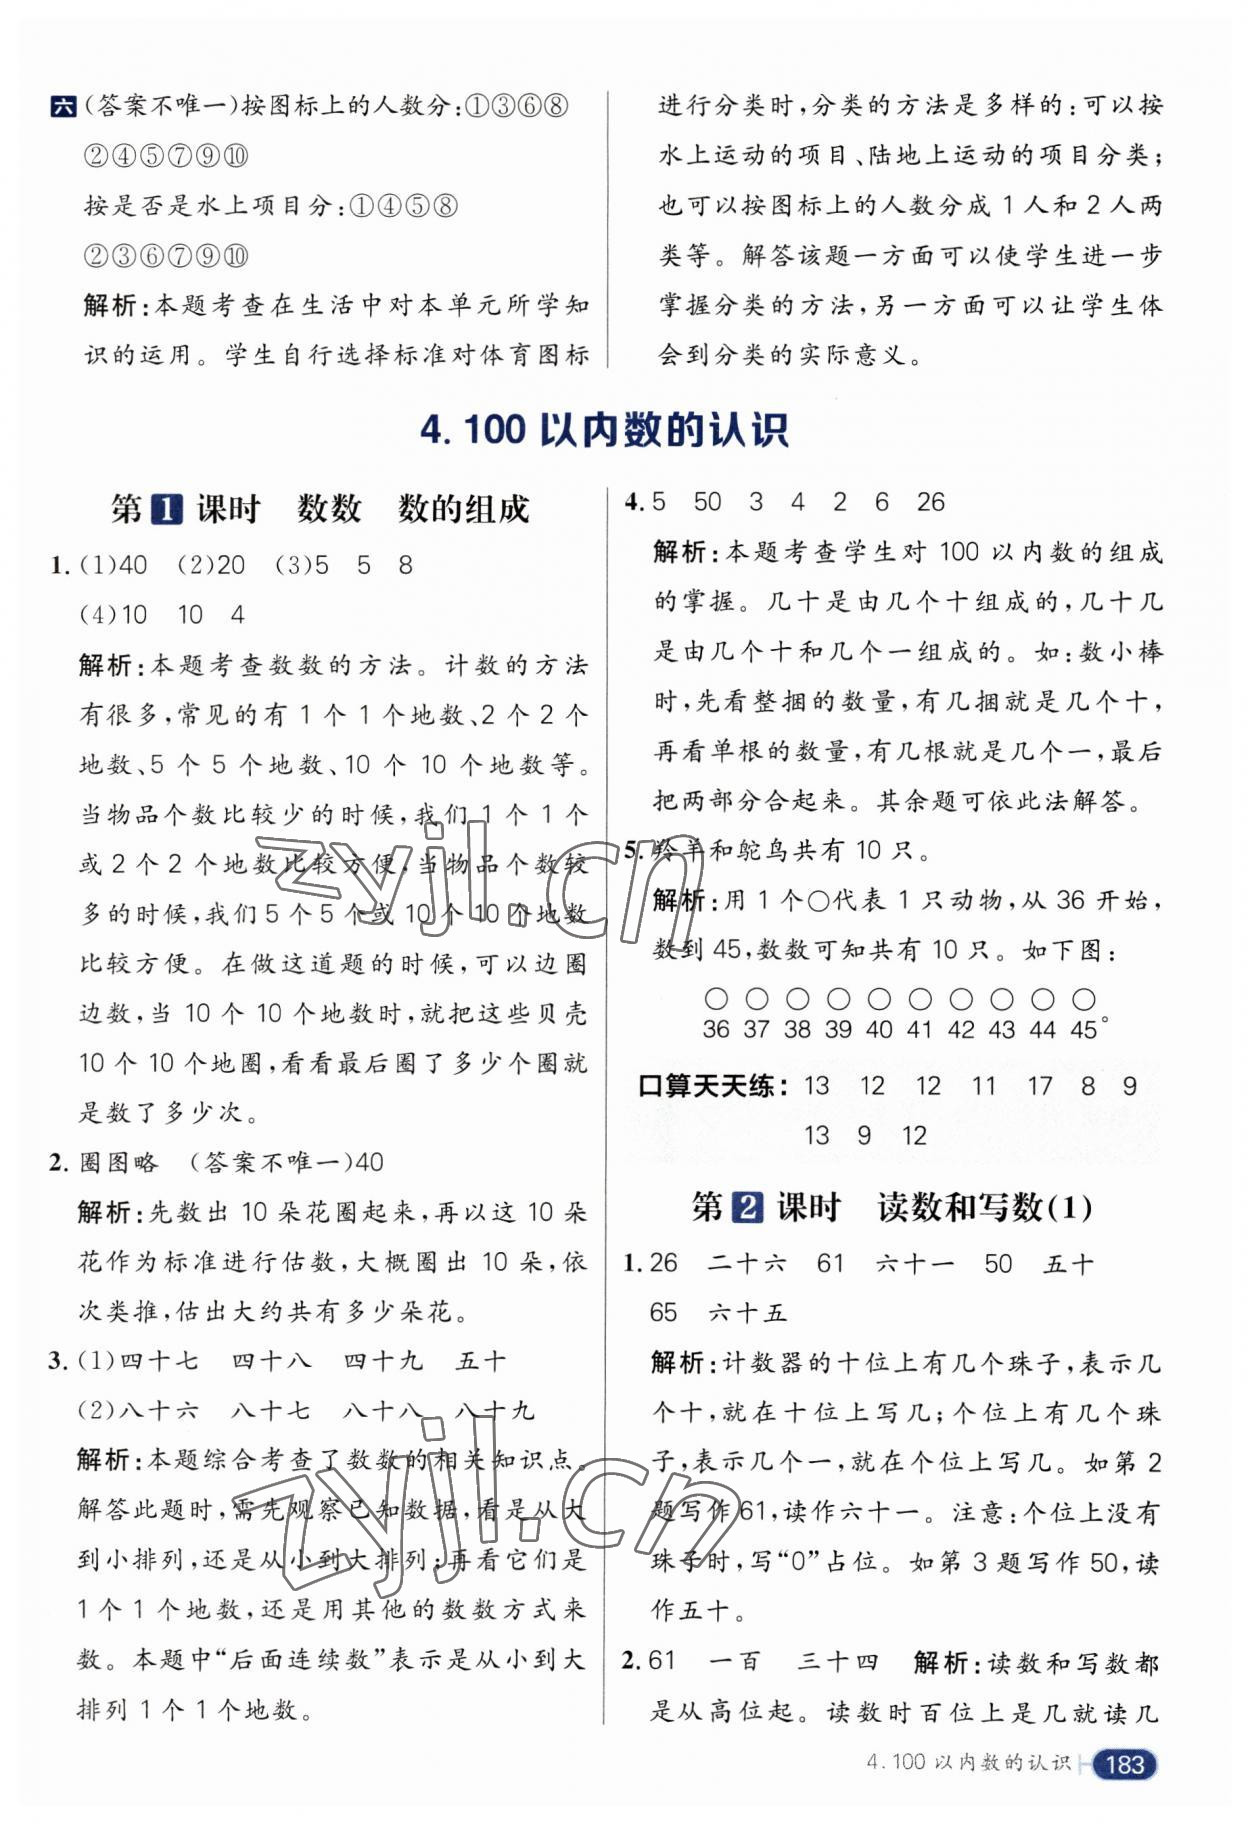 六 (答案不唯一)按图标上的人数分:①③⑥⑧
②④⑤⑦⑨⑩
按是否是水上项目分:①④⑤⑧
②③⑥⑦⑨⑩
解析:本题考查在生活中对本单元所学知
识的运用。学生自行选择标准对体育图标
进行分类时,分类的方法是多样的:可以按
水上运动的项目、陆地上运动的项目分类;
也可以按图标上的人数分成 1 人和 2 人两
类等。解答该题一方面可以使学生进一步
掌握分类的方法,另一方面可以让学生体
会到分类的实际意义。
4. 100 以内数的认识
第1课时 数数 数的组成
1. (1)40 (2)20 (3)5 5 8
(4)10 10 4
解析:本题考查数数的方法。计数的方法
有很多,常见的有 1 个 1 个地数、2 个 2 个
地数、5 个 5 个地数、10 个 10 个地数等。
当物品个数比较少的时候,我们 1 个 1 个
或 2 个 2 个地数比较方便,当物品个数较
多的时候,我们 5 个 5 个或 10 个 10 个地数
比较方便。在做这道题的时候,可以边圈
边数,当 10 个 10 个地数时,就把这些贝壳
10 个 10 个地圈,看看最后圈了多少个圈就
是数了多少次。
2. 圈图略 (答案不唯一)40
解析:先数出 10 朵花圈起来,再以这 10 朵
花作为标准进行估数,大概圈出 10 朵,依
次类推,估出大约共有多少朵花。
3. (1)四十七 四十八 四十九 五十
(2)八十六 八十七 八十八 八十九
解析:本题综合考查了数数的相关知识点。
解答此题时,需先观察已知数据,看是从大
到小排列,还是从小到大排列;再看它们是
1 个 1 个地数,还是用其他的数数方式来
数。本题中“后面连续数”表示是从小到大
排列 1 个 1 个地数。
4. 5 50 3 4 2 6 26
解析:本题考查学生对 100 以内数的组成
的掌握。几十是由几个十组成的,几十几
是由几个十和几个一组成的。如:数小棒
时,先看整捆的数量,有几捆就是几个十,
再看单根的数量,有几根就是几个一,最后
把两部分合起来。其余题可依此法解答。
5. 羚羊和鸵鸟共有 10 只。
解析:用 1 个○代表 1 只动物,从 36 开始,
数到 45,数数可知共有 10 只。如下图:
○ ○ ○ ○ ○ ○ ○ ○ ○ ○
36 37 38 39 40 41 42 43 44 45。
口算天天练: 13 12 12 11 17 8 9
13 9 12
第2课时 读数和写数(1)
1. 26 二十六 61 六十一 50 五十
65 六十五
解析:计数器的十位上有几个珠子,表示几
个十,就在十位上写几;个位上有几个珠
子,表示几个一,就在个位上写几。如第 2
题写作 61,读作六十一。注意:个位上没有
珠子时,写“0”占位。如第 3 题写作 50,读
作五十。
2. 61 一百 三十四 解析:读数和写数都
是从高位起。读数时百位上是几就读几
4. 100 以内数的认识 183
zyjl.cn
zyjl.cn